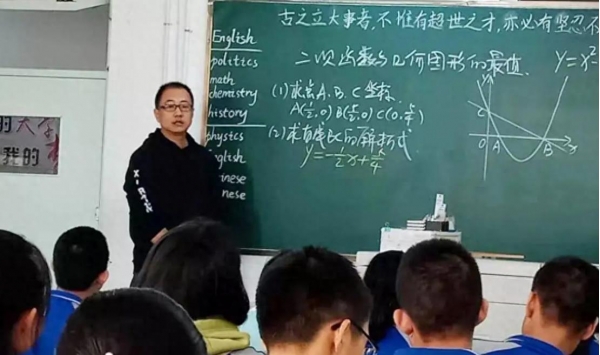 古之立大事者，不惟有超世之才，亦必有坚忍不
English
politics
math
chemistry
history
physics
nglish
inese
nese
二次函数与几何图形的最值
y=x²-
(1)求点A、B、C坐标.
A(½,0) B(5/2,0) C(0,5/4)
(2)求直线BC的解析式
y=-½x+5/4
y
C
O
A
B
x
的大学
我的